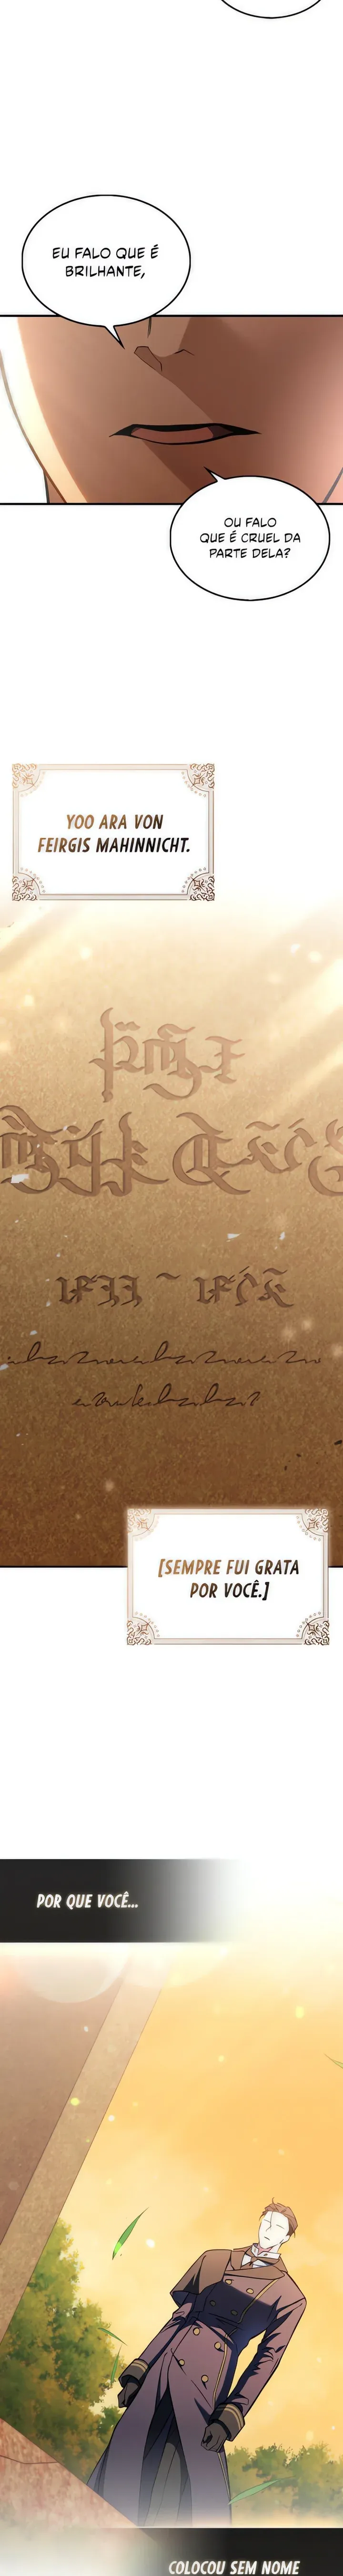 EU FALO QUE É
BRILHANTE,
OU FALO
QUE É CRUEL DA
PARTE DELA?
YOO ARA VON
FEIRGIS MAHINNICHT.
[SEMPRE FUI GRATA
POR VOCÊ.]
POR QUE VOCÊ...
COLOCOU SEM NOME